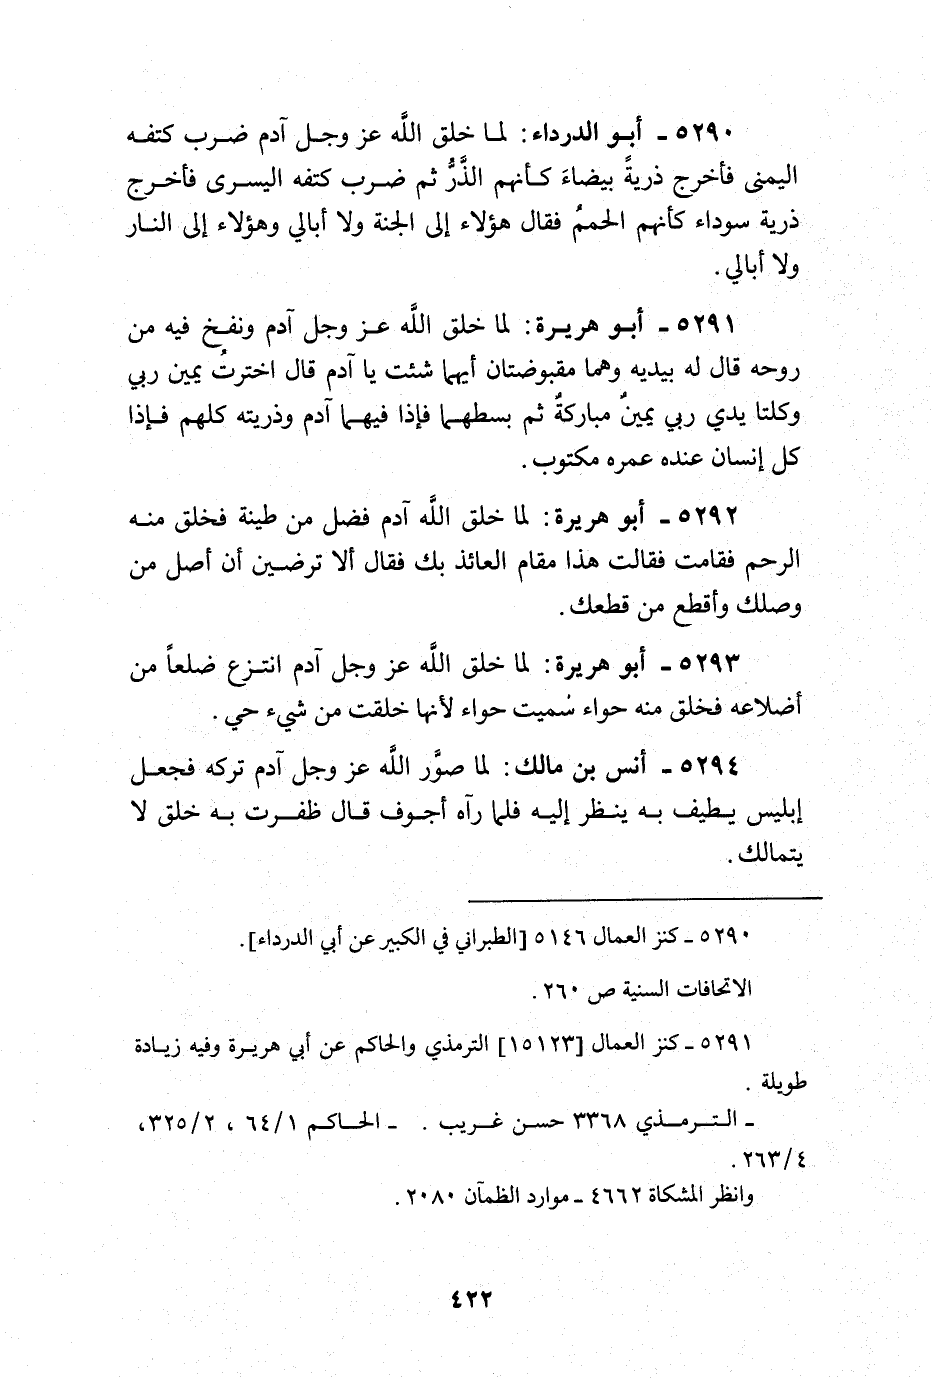 ٥٢٩٠ ـ أبو الدرداء: لما خلق اللَّه عز وجل آدم ضرب كتفه
اليمنى فأخرج ذريةً بيضاءَ كأنهم الذَّرُّ ثم ضرب كتفه اليسرى فأخرج
ذرية سوداء كأنهم الحممُ فقال هؤلاء إلى الجنة ولا أبالي وهؤلاء إلى النار
ولا أبالي.
٥٢٩١ ـ أبو هريرة: لما خلق اللَّه عز وجل آدم ونفخ فيه من
روحه قال له بيديه وهما مقبوضتان أيهما شئت يا آدم قال اخترتُ يمين ربي
وكلتا يدي ربي يمينٌ مباركةٌ ثم بسطهما فإذا فيهما آدم وذريته كلهم فإذا
كل إنسان عنده عمره مكتوب.
٥٢٩٢ ـ أبو هريرة: لما خلق اللَّه آدم فضل من طينة فخلق منه
الرحم فقامت فقالت هذا مقام العائذ بك فقال ألا ترضين أن أصل من
وصلك وأقطع من قطعك.
٥٢٩٣ ـ أبو هريرة: لما خلق اللَّه عز وجل آدم انتزع ضلعاً من
أضلاعه فخلق منه حواء سُميت حواء لأنها خلقت من شيء حي.
٥٢٩٤ ـ أنس بن مالك: لما صوَّر اللَّه عز وجل آدم تركه فجعل
إبليس يطيف به ينظر إليه فلما رآه أجوف قال ظفرت به خلق لا
يتمالك.
٥٢٩٠ ـ كنز العمال ٥١٤٦ [الطبراني في الكبير عن أبي الدرداء].
الاتحافات السنية ص ٢٦٠.
٥٢٩١ ـ كنز العمال [١٥١٢٣] الترمذي والحاكم عن أبي هريرة وفيه زيادة
طويلة.
ـ الترمذي ٣٣٦٨ حسن غريب. ـ الحاكم ٦٤/١، ٣٢٥/٢،
٢٦٣/٤.
وانظر المشكاة ٤٦٦٢ ـ موارد الظمآن ٢٠٨٠.
٤٢٢